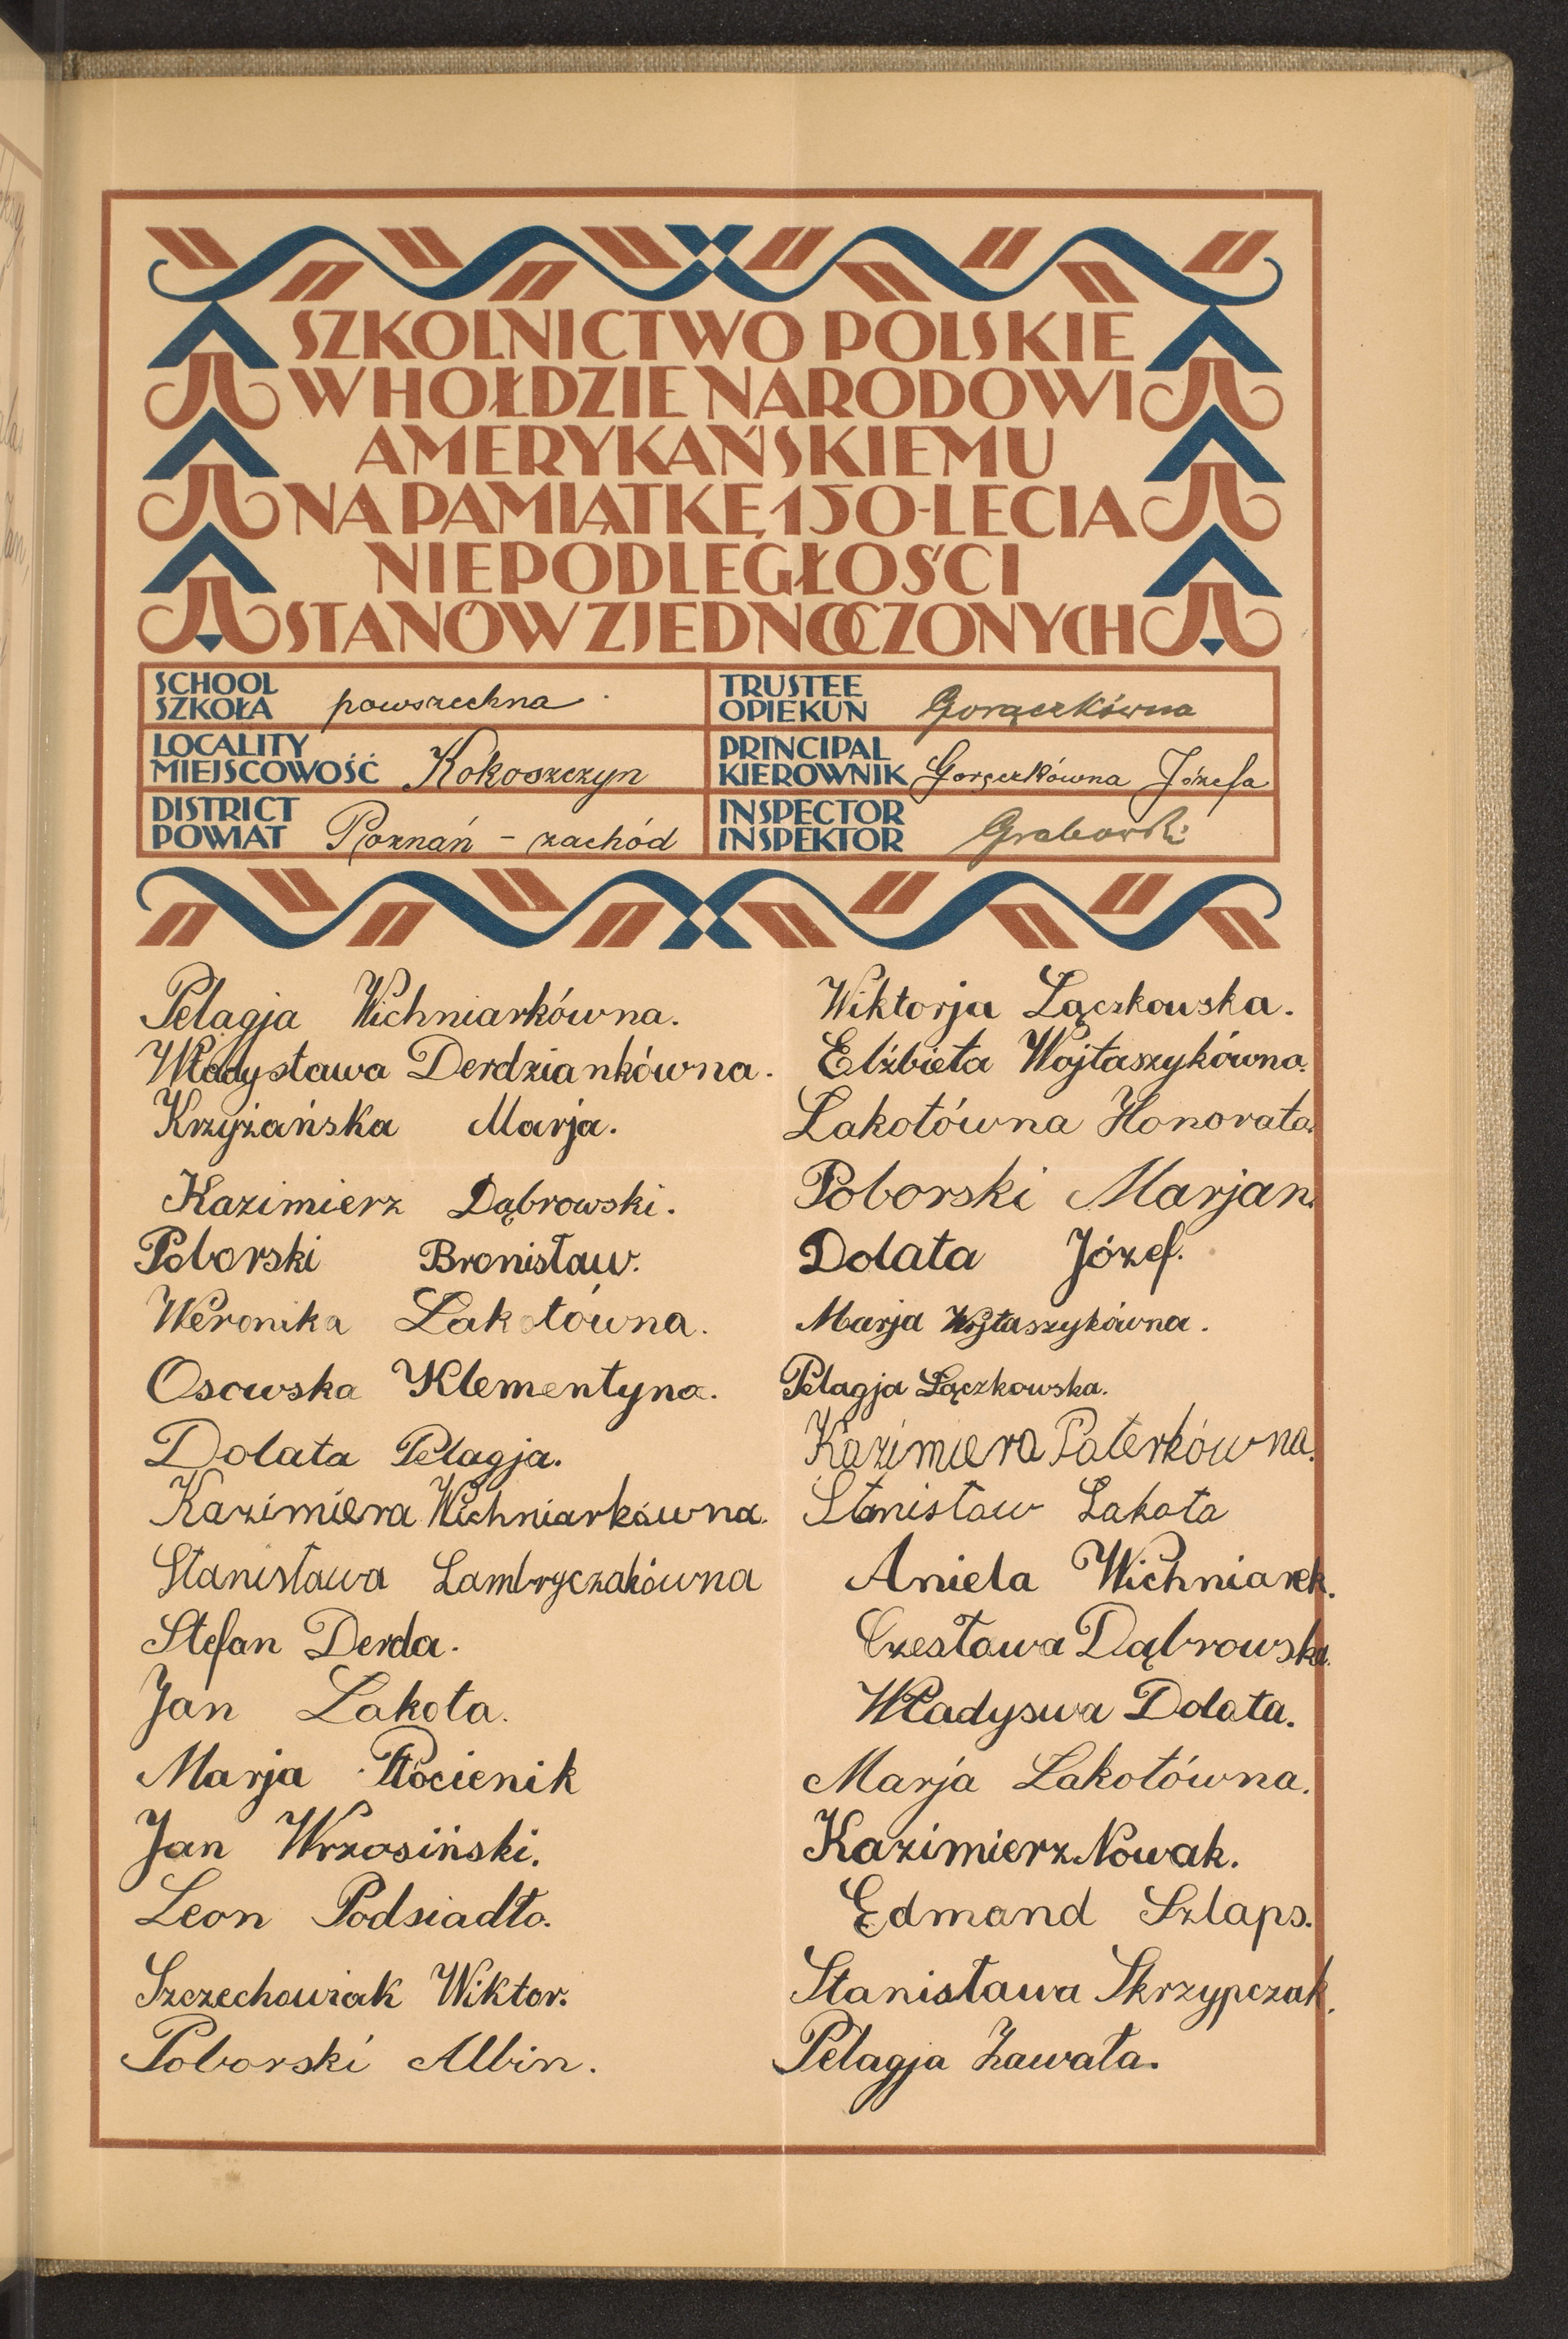 SZKOLNICTWO POLSKIE
W HOŁDZIE NARODOWI
AMERYKAŃSKIEMU
NA PAMIĄTKĘ 150-LECIA
NIEPODLEGŁOŚCI
STANÓW ZJEDNOCZONYCH
SCHOOL
SZKOŁA powszechna
TRUSTEE
OPIEKUN Gorączkówna
LOCALITY
MIEJSCOWOŚĆ Kokoszczyn
PRINCIPAL
KIEROWNIK Gorączkówna Józefa
DISTRICT
POWIAT Poznań - zachód
INSPECTOR
INSPEKTOR Grabowski
Pelagja Wichniarkówna.
Władysława Derdziankówna.
Krzyżańska Marja.
Kazimierz Dąbrowski.
Poborski Bronisław.
Weronika Lakotówna.
Osowska Klementyna.
Dolata Pelagja.
Kazimiera Wichniarkówna.
Stanisława Lambryczakówna
Stefan Derda.
Jan Lakota.
Marja Płócienik
Jan Wrzosiński.
Leon Podsiadło.
Szczechowiak Wiktor.
Poborski Albin.
Wiktorja Łączkowska.
Elżbieta Wojtaszykówna.
Lakotówna Honorata.
Poborski Marjan.
Dolata Józef.
Marja Wojtaszykówna.
Pelagja Łączkowska.
Kazimiera Paterkówna.
Stanisław Lakota
Aniela Wichniarek.
Czesława Dąbrowska.
Władyswa Dolata.
Marja Lakotówna.
Kazimierz Nowak.
Edmand Szlaps.
Stanisława Skrzypczak.
Pelagja Zawała.